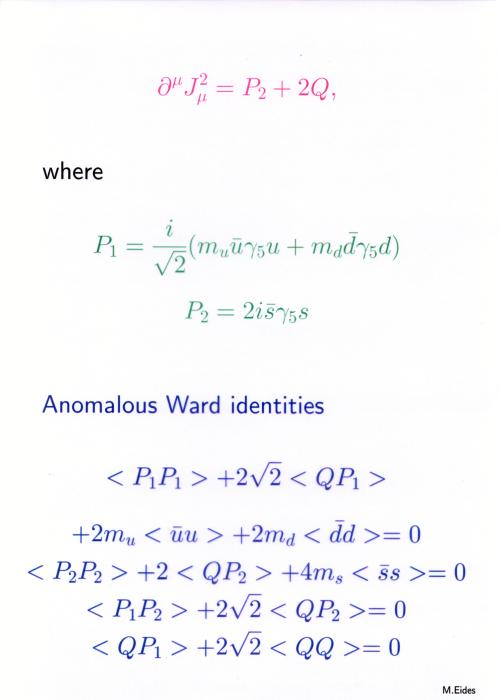 ∂^μ J_μ^2 = P_2 + 2Q,
where
P_1 = \frac{i}{\sqrt{2}}(m_u ūγ_5u + m_d d̄γ_5d)
P_2 = 2i s̄γ_5s
Anomalous Ward identities
< P_1P_1 > +2√2 < QP_1 >
+2m_u < ūu > +2m_d < d̄d >= 0
< P_2P_2 > +2 < QP_2 > +4m_s < s̄s >= 0
< P_1P_2 > +2√2 < QP_2 >= 0
< QP_1 > +2√2 < QQ >= 0
M.Eides